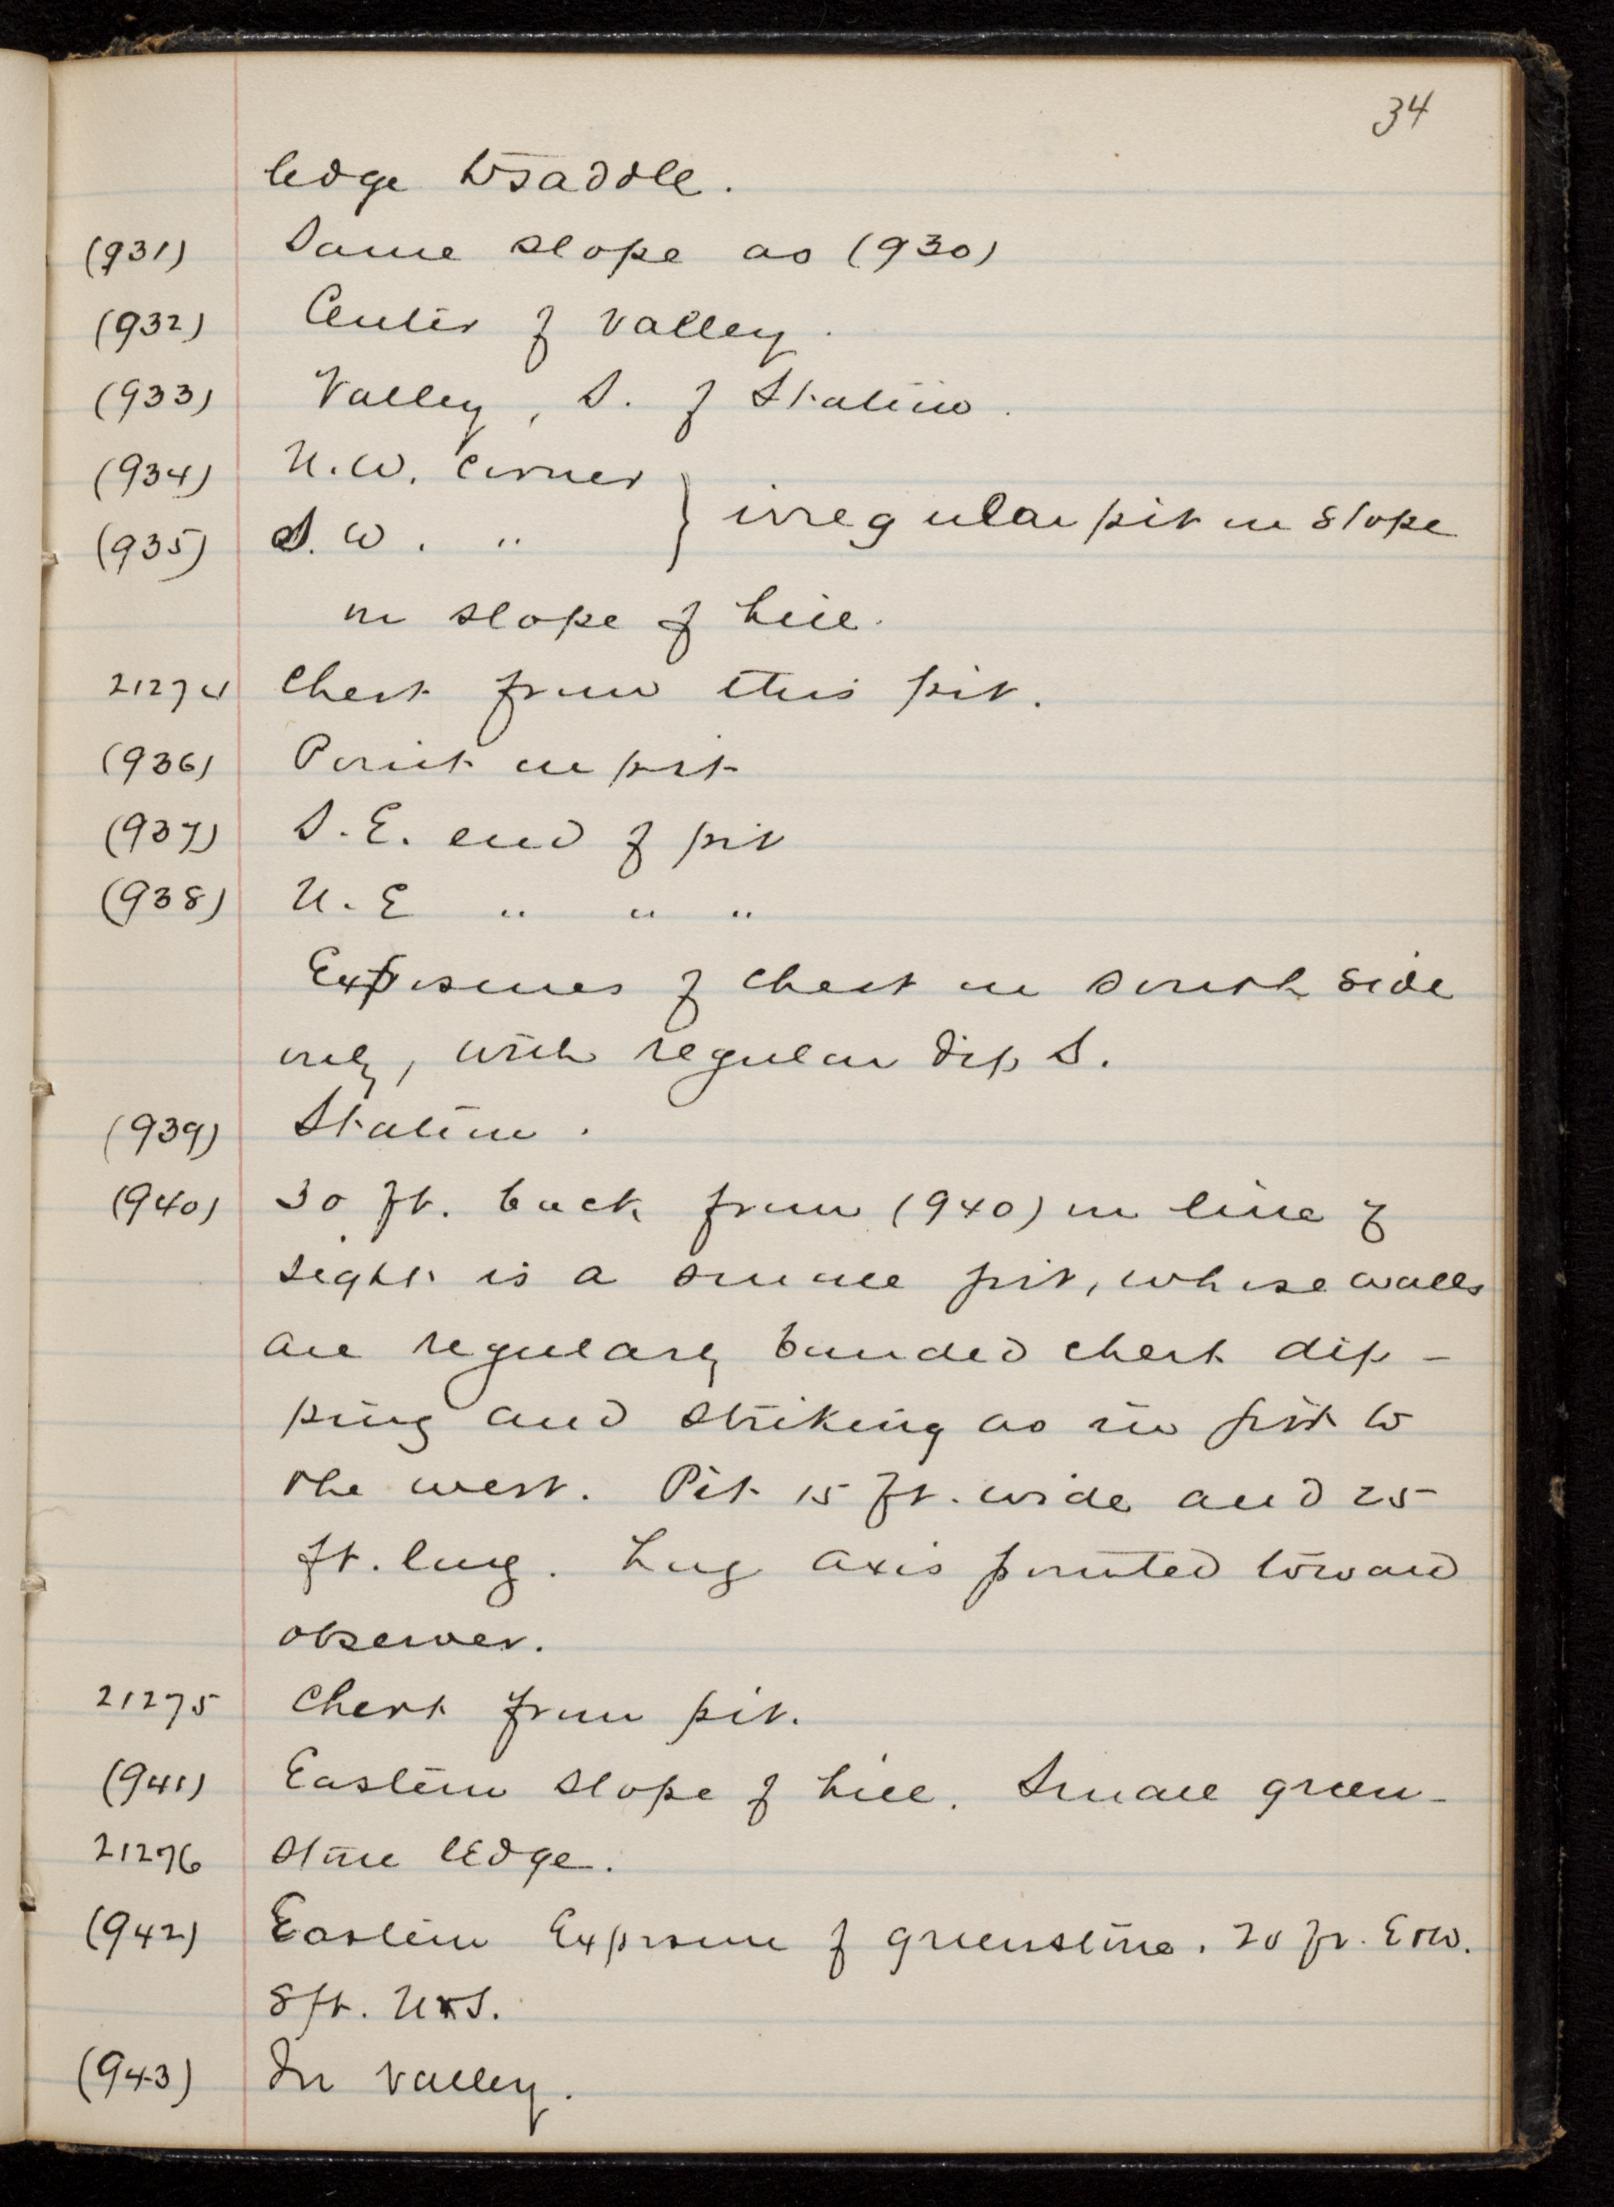 34
ledge to saddle.
(931) Same slope as (930)
(932) Center of valley.
(933) Valley, S. of Station.
(934) N.W. corner } irregular pit on slope
(935) S.W. "
on slope of hill.
21274 Chert from this pit.
(936) Point on pit
(937) S.E. end of pit
(938) N.E " " "
Exposures of chert on south side
only, with regular dip S.
(939) Station.
(940) 30 ft. back from (940) in line of
sight is a small pit, whose walls
are regularly banded chert dip-
ping and striking as in pit to
the west. Pit 15 ft. wide and 25
ft. long. Long axis pointed toward
observer.
21275 Chert from pit.
(941) Eastern slope of hill. Small green-
21276 stone ledge.
(942) Eastern Exposure of greenstone. 20 ft. E & W.
8 ft. N & S.
(943) In valley.